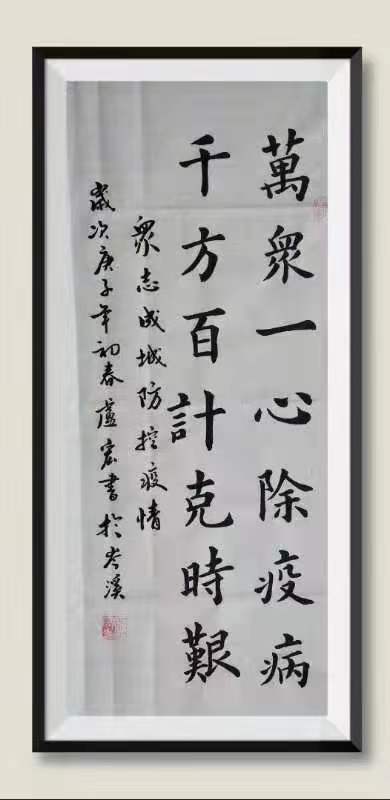 萬眾一心除疫病
千方百計克時艱
眾志成城防控疫情
歲次庚子年初春盧宏書於岑溪